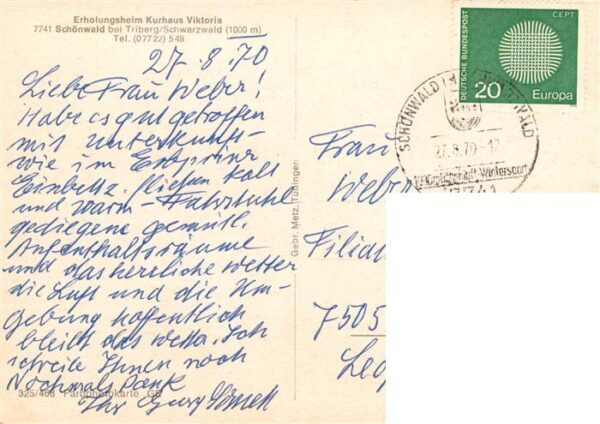 Erholungsheim Kurhaus Viktoria
7741 Schönwald bei Triberg/Schwarzwald (1000 m)
Tel. (07722) 548
27.8.70
Liebe Frau Weber!
Habe es gut getroffen
mit Unterkunft-
wie im Erbprinz
Einbettz. fließen kalt
und warm - Fahrstuhl
gediegene gemütl.
Aufenthaltsräume
und das herrliche Wetter
die Luft und die Um-
gebung hoffentlich
bleibt das Wetter. Ich
schreibe Ihnen noch
Nochmals Dank
Ihr
325/468 Farbphotokarte GE
Gebr. Metz, Tübingen
DEUTSCHE BUNDESPOST
CEPT
20 Europa
SCHÖNWALD
27.8.70-12
Wintersport
7741
Frau
Weber
Filial
7505